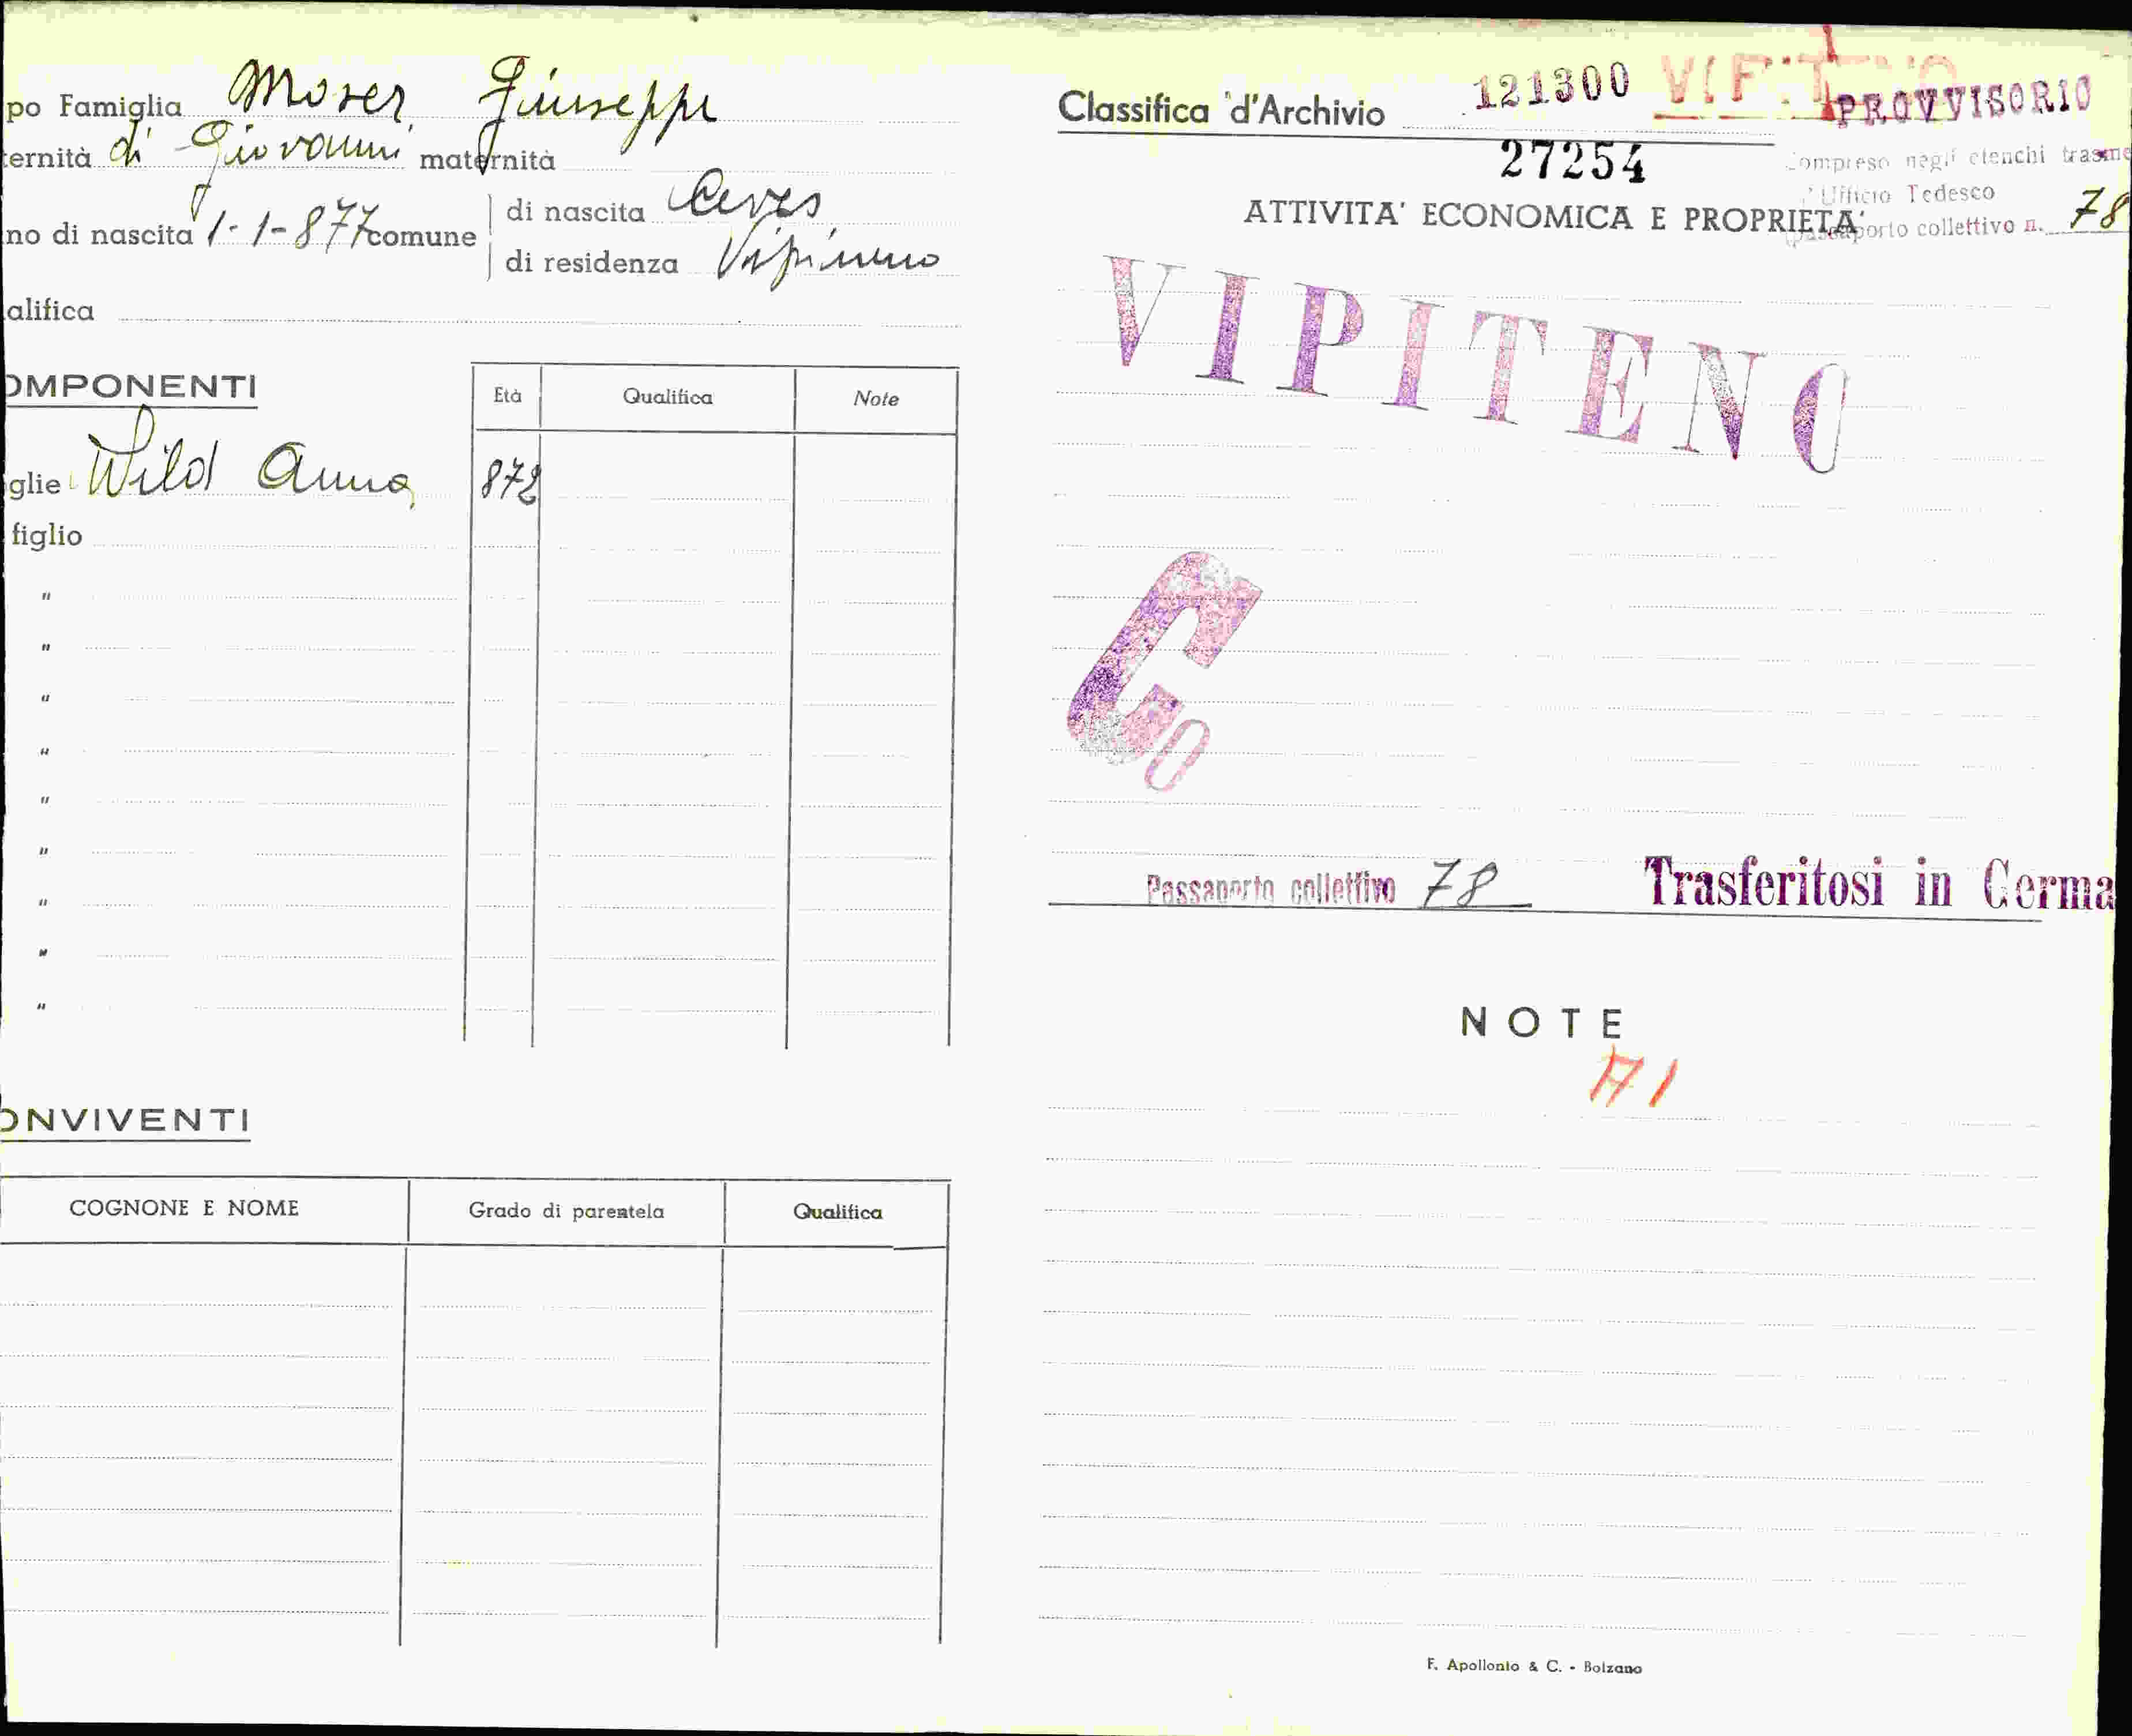 po Famiglia Moser Giuseppe
ternità di Giovanni maternità
no di nascita 1-1-877 comune
di nascita Ceves
di residenza Vipiteno
alifica
OMPONENTI
Età Qualifica Note
glie Wild Anna 872
figlio
"
"
"
"
"
"
"
"
"
ONVIVENTI
COGNONE E NOME Grado di parentela Qualifica
Classifica d'Archivio 121300 VIPITENO PROVVISORIO
27254
Compreso negli elenchi trasme
Ufficio Tedesco
passaporto collettivo n. 78
ATTIVITA' ECONOMICA E PROPRIETA'
VIPITENO
Co
Passaporto collettivo 78 Trasferitosi in Germa
NOTE
A1
F. Apollonio & C. - Bolzano